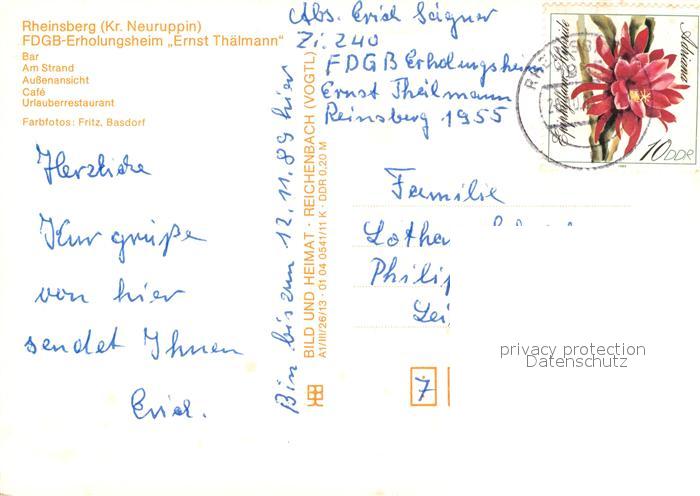 Rheinsberg (Kr. Neuruppin)
FDGB-Erholungsheim „Ernst Thälmann“
Bar
Am Strand
Außenansicht
Café
Urlauberrestaurant
Farbfotos: Fritz, Basdorf
Herzliche
Kurgrüße
von hier
sendet Ihnen
Erich.
Bin bis zum 12.11.89 hier
BILD UND HEIMAT · REICHENBACH (VOGTL)
A1/III/26/13 · 01 04 0541/11 K · DDR 0,20 M
Abs. Erich
Zi. 240
FDGB Erholungsheim
Ernst Theilmann
Reinsberg 1955
Epiphyllum-Hybride
10 DDR
Familie
Lotha
Philip
Lei
7
privacy protection
Datenschutz